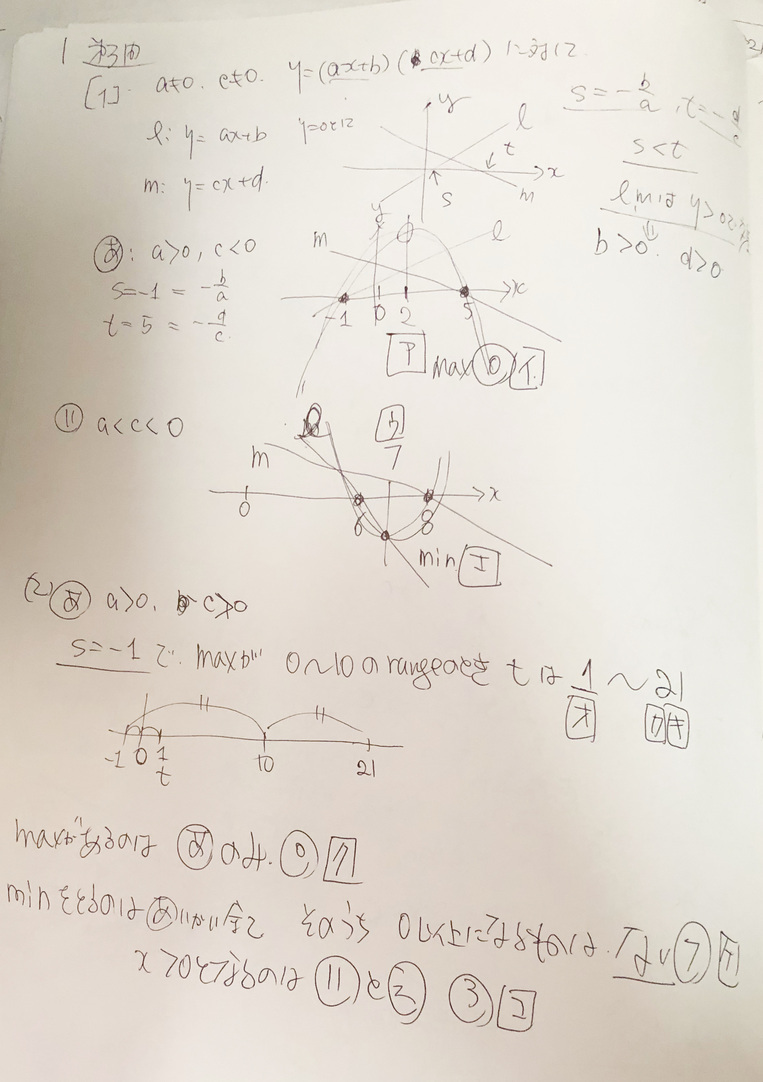 1 第3回
[1]. a≠0. c≠0. y=(ax+b)(cx+d) に対して
l: y=ax+b y=0とに
m: y=cx+d.
y l t x s m
s=-b/a, t=-d/c
s<t
l, mは y>0で
b>0. d>0
あ: a>0, c<0
s=-1=-b/a
t=5=-d/c
y m l x -1 0 2 5
ア max ⓪ イ
い a<c<0
ウ 7
m 0 6 8 x
min エ
(2) あ a>0, c>0
s=-1で. maxが 0〜10のrangeのとき tは 1〜21
オ カキ
-1 0 1 t 10 21
maxがあるのは あのみ. ⓪ ク
minをとるのは そのうち 0以上になるものは. ない ⑦ ケ
x>0となるのは いと ③ コ